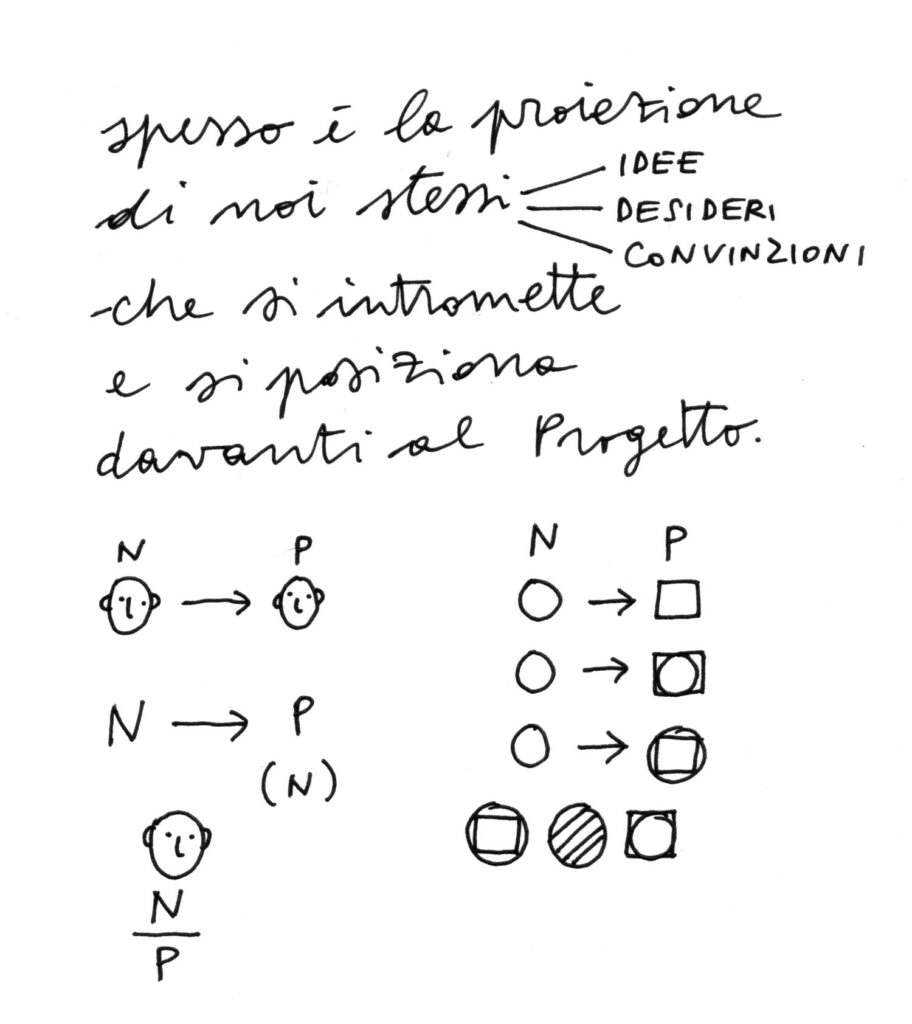 spesso è la proiezione
di noi stessi
IDEE
DESIDERI
CONVINZIONI
che si intromette
e si posiziona
davanti al Progetto.
N P
N P
(N)
N
P
N P